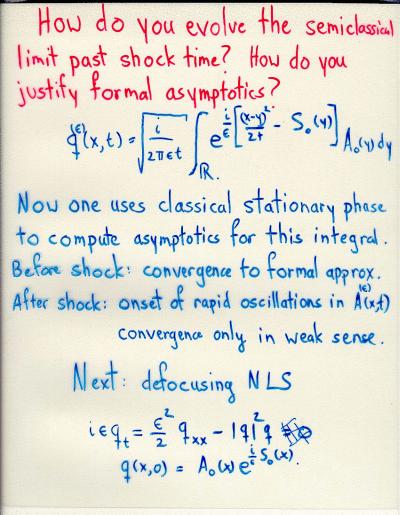 How do you evolve the semiclassical
limit past shock time? How do you
justify formal asymptotics?
q^(ε)(x,t) = √(i/2πεt) ∫_ℝ e^{i/ε [(x-y)²/2t - S₀(y)]} A₀(y) dy
Now one uses classical stationary phase
to compute asymptotics for this integral.
Before shock: convergence to formal approx.
After shock: onset of rapid oscillations in A^(ε)(x,t)
convergence only in weak sense.
Next: defocusing NLS
iεq_t = ε²/2 q_xx - |q|²q
q(x,0) = A₀(x) e^{i/ε S₀(x)}.